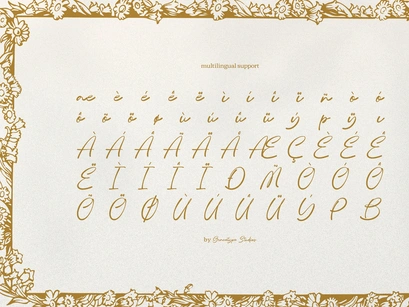 multilingual support
æ è é ê ë ì í î ï ñ ò ó
ô õ ö ø ù ú û ü ý þ ÿ ı
À Á Â Ã Ä Å Æ Ç È É Ê
Ë Ì Í Î Ï Ð Ñ Ò Ó Ô
Õ Ö Ø Ù Ú Û Ü Ý Þ ẞ
by Grandtype Studios